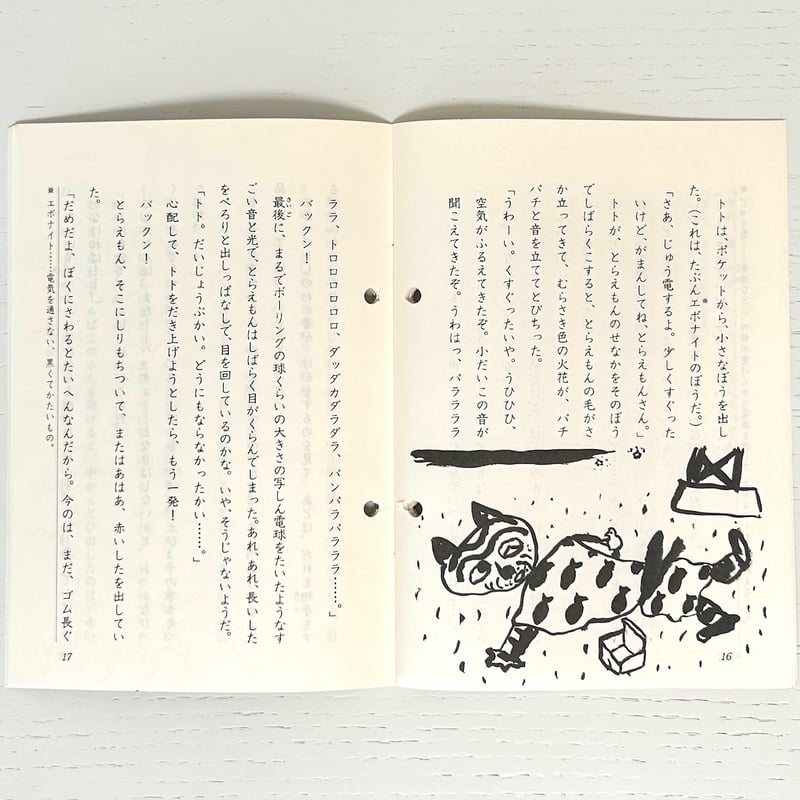 トトは、ポケットから、小さなぼうを出し
た。(これは、たぶんエボナイト※のぼうだ。)
「さあ、じゅう電するよ。少しくすぐった
いけど、がまんしてね、とらえもんさん。」
トトが、とらえもんのせなかをそのぼう
でしばらくこすると、とらえもんの毛がさ
か立ってきて、むらさき色の火花が、パチ
パチと音を立ててとびちった。
「うわーい。くすぐったいや。うひひひ、
空気がふるえてきたぞ。小だいこの音が
聞こえてきたぞ。うわはっ、バラララララ
16
ララ、トロロロロロロ、ダッダカダラダラ、バンバラバラララ……。」
バックン!
最後に、まるでボーリングの球くらいの大きさの写しん電球をたいたようなす
さいご
ごい音と光で、とらえもんはしばらく目がくらんでしまった。あれ、あれ、長いした
をぺろりと出しっぱなしで、目を回しているのかな。いや、そうじゃないようだ。
「トト。だいじょうぶかい。どうにもならなかったかい……。」
心配して、トトをだき上げようとしたら、もう一発!
バックン!
とらえもん、そこにしりもちついて、またはあはあ、赤いしたを出してい
た。
「だめだよ、ぼくにさわるとたいへんなんだから。今のは、まだ、ゴム長ぐ
※ エボナイト……電気を通さない、黒くてかたいもの。
17